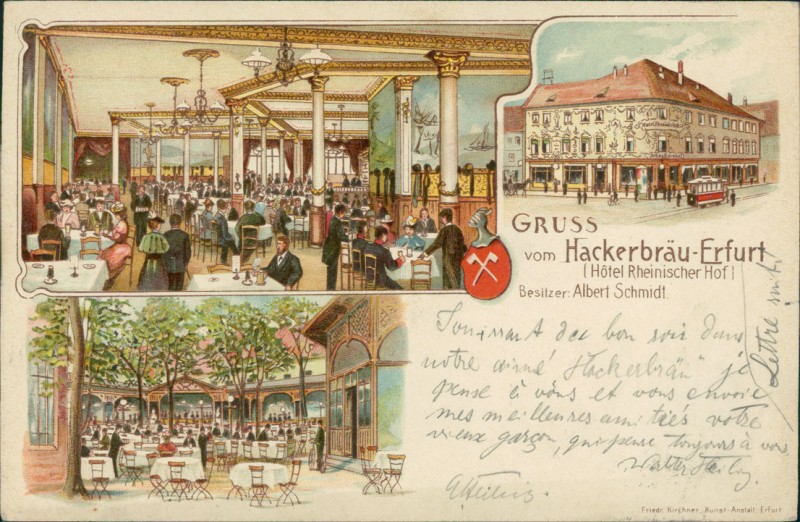 Hôtel Rheinischer Hof
GRUSS
vom Hackerbräu-Erfurt
(Hôtel Rheinischer Hof)
Besitzer: Albert Schmidt.
Jouissant du bon soir dans
notre aimé „Hackerbräu" je
pense à vous et vous envoie
mes meilleures amitiés votre
vieux garçon, qui pense toujours à vous
Walter
Lettre suit.
Friedr. Kirchner, Kunst-Anstalt, Erfurt